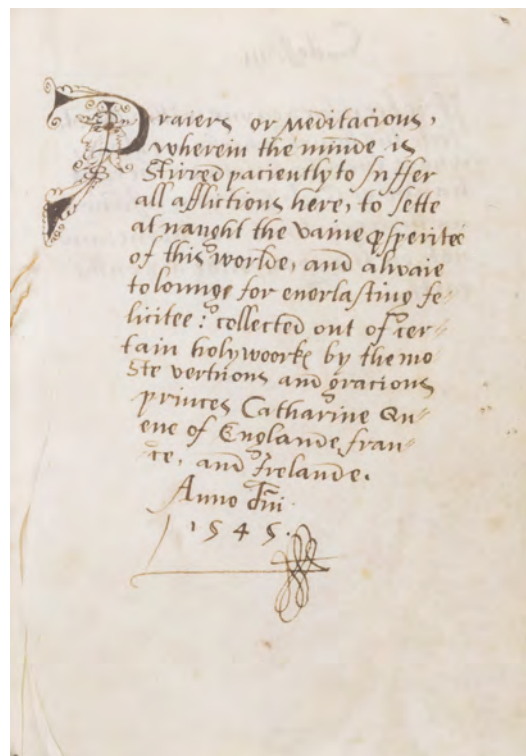 Praiers or Meditacions,
wherein the minde is
stirred paciently to suffer
all afflictions here, to sette
at naught the vaine ꝓsperitee
of this worlde, and alwaie
to lounge for euerlasting fe⸗
licitee: collected out of cer⸗
tain holy woorkꝭ by the mo
ste vertuous and gracious
princes Catharine Qu⸗
ene of Englande, fran⸗
ce, and Irelande.
Anno dñi
1545.